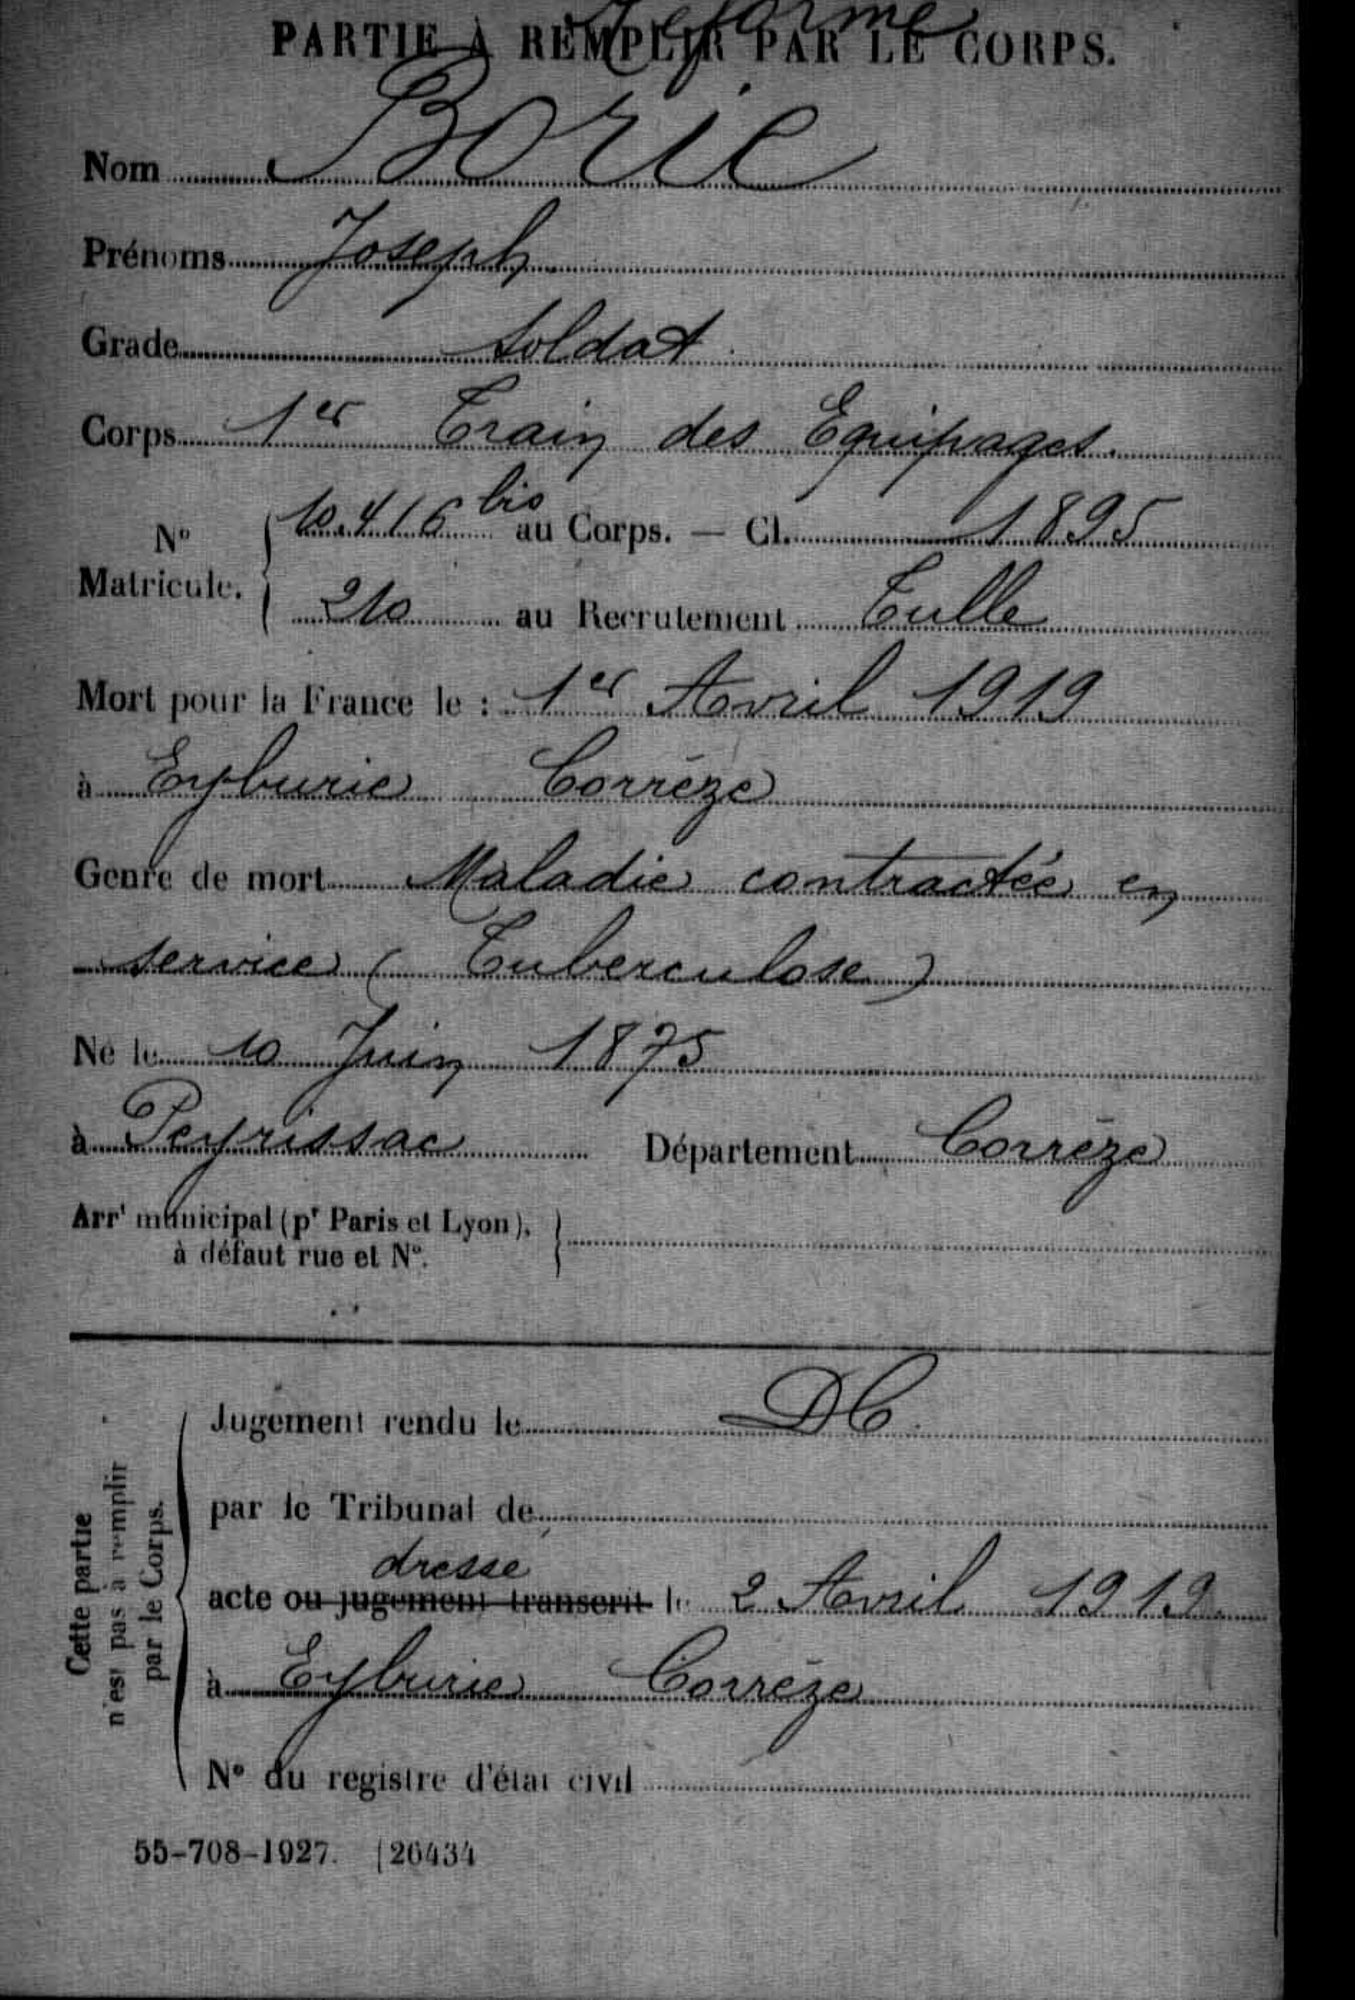 Réformé
PARTIE À REMPLIR PAR LE CORPS.
Nom Borie
Prénoms Joseph
Grade Soldat
Corps 1er Train des Equipages.
No Matricule. { 10.416 bis au Corps. — Cl. 1895
210 au Recrutement Tulle
Mort pour la France le : 1er Avril 1919
à Eyburie Corrèze
Genre de mort Maladie contractée en
service (Tuberculose)
Né le 10 Juin 1875
à Peyrissac Département Corrèze
Arrt municipal (pr Paris et Lyon), }
à défaut rue et No.
Cette partie
n'est pas à remplir
par le Corps.
Jugement rendu le DC.
par le Tribunal de
dresse
acte ou jugement transcrit le 2 Avril 1919.
à Eyburie Corrèze
No du registre d'état civil
55-708-1927. [26434